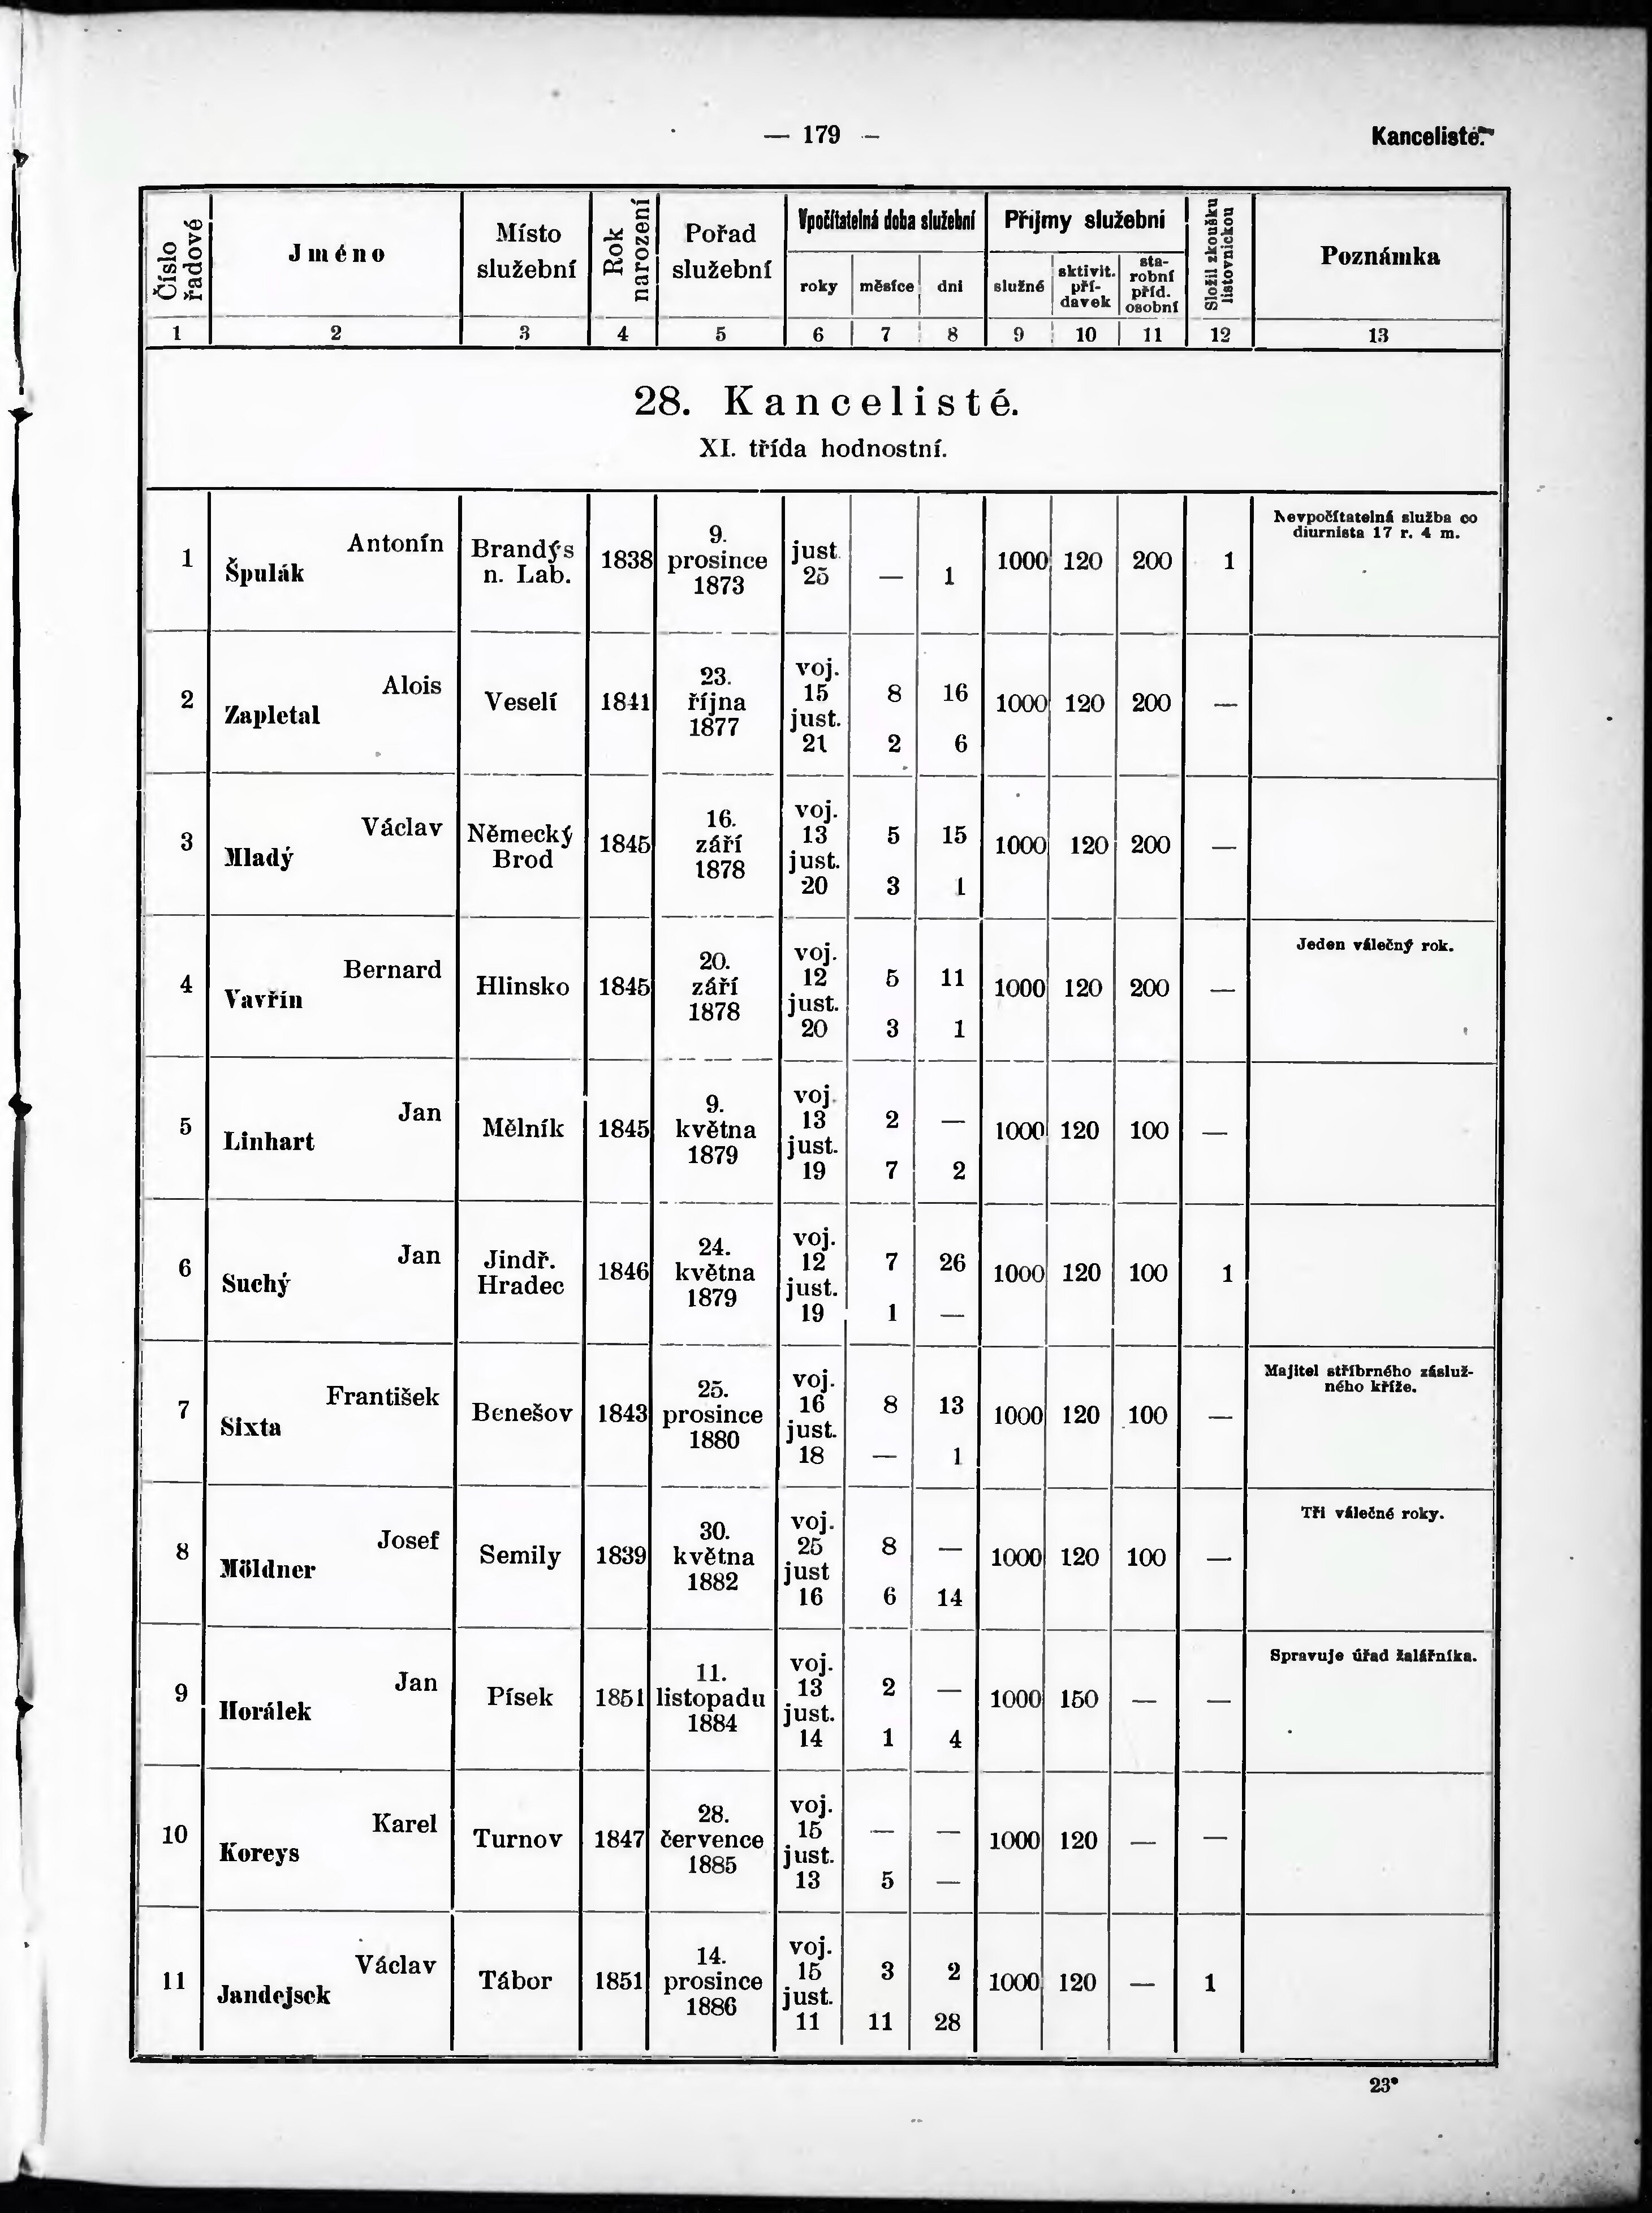 — 179 –
Kancelisté.
Číslo řadové
Jméno
Místo služební
Rok narození
Pořad služební
Vpočítatelná doba služební
roky
měsíce
dni
Příjmy služební
služné
aktivit. pří-
davek
sta-
robní
příd.
osobní
Složil zkoušku listovnickou
Poznámka
1 2 3 4 5 6 7 8 9 10 11 12 13
28. Kancelisté.
XI. třída hodnostní.
1 Antonín Špulák Brandýs n. Lab. 1838 9. prosince 1873 just 25 — 1 1000 120 200 1 Nevpočítatelná služba co diurnista 17 r. 4 m.
2 Alois Zapletal Veselí 1841 23. října 1877 voj. 15 8 16 just. 21 2 6 1000 120 200 —
3 Václav Mladý Německý Brod 1845 16. září 1878 voj. 13 5 15 just. 20 3 1 1000 120 200 —
4 Bernard Vavřín Hlinsko 1845 20. září 1878 voj. 12 5 11 just. 20 3 1 1000 120 200 — Jeden válečný rok.
5 Jan Linhart Mělník 1845 9. května 1879 voj. 13 2 — just. 19 7 2 1000 120 100 —
6 Jan Suchý Jindř. Hradec 1846 24. května 1879 voj. 12 7 26 just. 19 1 — 1000 120 100 1
7 František Sixta Benešov 1843 25. prosince 1880 voj. 16 8 13 just. 18 — 1 1000 120 100 — Majitel stříbrného záslužného kříže.
8 Josef Möldner Semily 1839 30. května 1882 voj. 25 8 — just 16 6 14 1000 120 100 — Tři válečné roky.
9 Jan Horálek Písek 1851 11. listopadu 1884 voj. 13 2 — just. 14 1 4 1000 150 — — Spravuje úřad žalářníka.
10 Karel Koreys Turnov 1847 28. července 1885 voj. 15 — — just. 13 5 — 1000 120 — —
11 Václav Jandejsek Tábor 1851 14. prosince 1886 voj. 15 3 2 just. 11 11 28 1000 120 — 1
23*